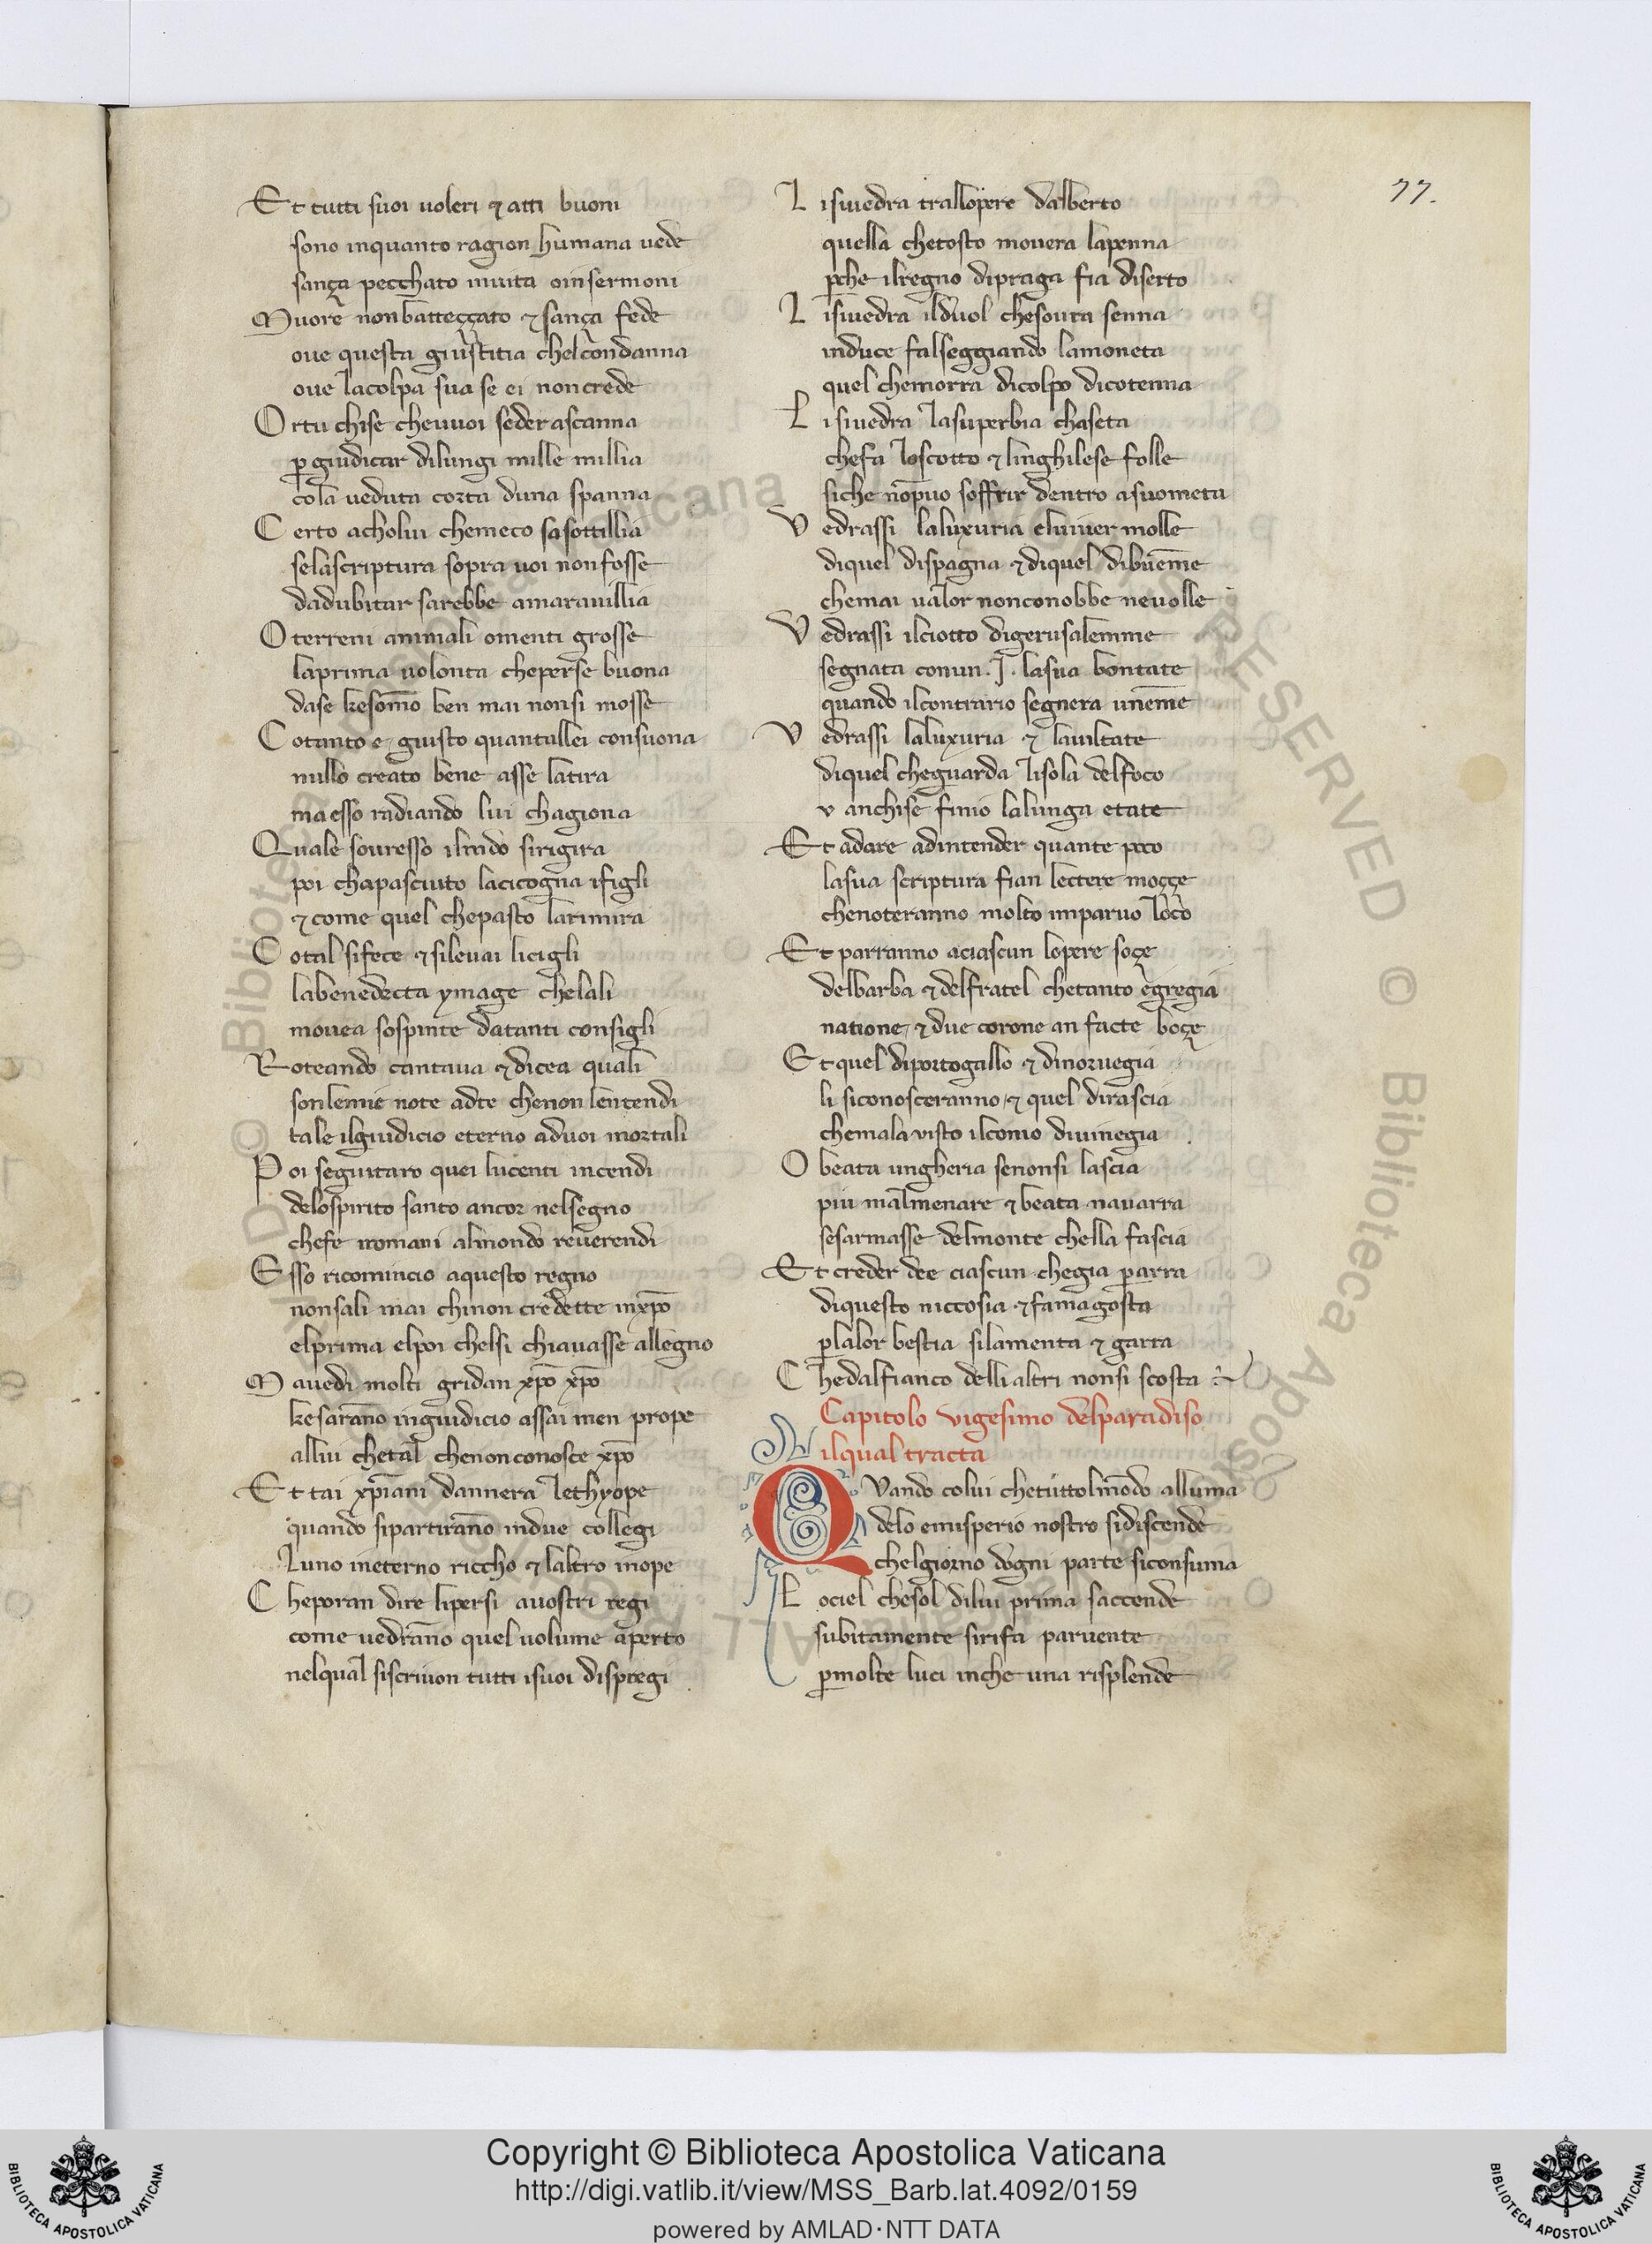 77.
Et tutti suoi uoleri ⁊ atti buoni
sono inquanto ragion humana uede
sança pecchato inuita oinsermoni
Muore nonbatteççato ⁊ sança fede
oue questa giustitia chelcondanna
oue lacolpa sua se ei noncrede
Ortu chise cheuuoi seder ascanna
ꝑ giudicar dilungi mille millia
cola ueduta corta duna spanna
Certo acholui chemeco sasottillia
selascriptura sopra uoi nonfosse
dadubitar sarebbe amarauillia
Oterreni animali omenti grosse
laprima uolonta cheperse buona
dase kesom̄o ben mai nonsi mosse
Cotanto e giusto quantallei consuona
nullo creato bene asse latira
ma esso radiando lui chagiona
Quale souresso ilnido sirigira
poi chapasciuto lacicogna ifigli
⁊ come quel chepasto larimira
Cotal sifece ⁊ sileuai licigli
labenedecta ymage chelali
mouea sospinte datanti consigli
Roteando cantaua ⁊ dicea quali
sonlemie note adte chenon lentendi
tale ilgiudicio eterno aduoi mortali
Poi seguitaro quei lucenti incendi
delospirito santo ancor nelsegno
chefe iromani almondo reuerendi
Esso ricomincio aquesto regno
nonsali mai chinon credette inxp̄o
elprima elpoi chelsi chiauasse allegno
Mauedi molti gridan xp̄o xp̄o
kesaran̄o ingiudicio assai men prope
allui chetal chenonconosce xp̄o
Et tai xp̄iani dannera lethyope
quando sipartiran̄o indue collegi
luno ineterno riccho ⁊ laltro inope
Cheporan dire lipersi auostri regi
come uedran̄o quel uolume aperto
nelqual siscriuon tutti isuoi dispregi
Lisiuedra trallopere dalberto
quella chetosto mouera lapenna
ꝑche ilregno dipraga fia diserto
Lisiuedra ilduol chesoura senna
induce falseggiando lamoneta
quel chemorra dicolpo dicotenna
Lisiuedra lasuperbia chaseta
chefa loscotto ⁊ linghilese folle
siche nōpuo soffrir dentro asuometa
Vedrassi laluxuria eluiuer molle
diquel dispagna ⁊ diquel dibuēme
chemai ualor nonconobbe neuolle
Vedrassi ilciotto digerusalemme
segnata conun .J. lasua bontate
quando ilcontrario segnera unem̄e
Vedrassi laluxuria ⁊ lauiltate
diquel cheguarda lisola delfoco
v anchise finio lalunga etate
Et adare adintender quante poco
lasua scriptura fian lettere moççe
chenoteranno molto imparuo loco
Et parranno aciascun lopere soçe
delbarba ⁊ delfratel chetanto egregia
natione, ⁊ due corone an facte boçe
Et quel diportogallo ⁊ dinoruegia
li siconosceranno, ⁊ quel dirascia
chemala visto ilconio diuinegia
O beata ungheria senonsi lascia
piu malmenare ⁊ beata nauarra
sesarmasse delmonte chella fascia
Et creder dee ciascun chegia parra
diquesto niccosia ⁊ famagosta
ꝑlalor bestia silamenta ⁊ garra
Chedalfianco delli altri nonsi scosta
Capitolo vigesimo delparadiso
ilqual tracta
QVando colui chetuttolmōdo alluma
delo emisperio nostro sidiscende
chelgiorno dogni parte siconsuma
Lo ciel chesol dilui prima saccende
subitamente sirifa paruente
ꝑmolte luci inche una risplende
Copyright © Biblioteca Apostolica Vaticana
http://digi.vatlib.it/view/MSS_Barb.lat.4092/0159
powered by AMLAD·NTT DATA